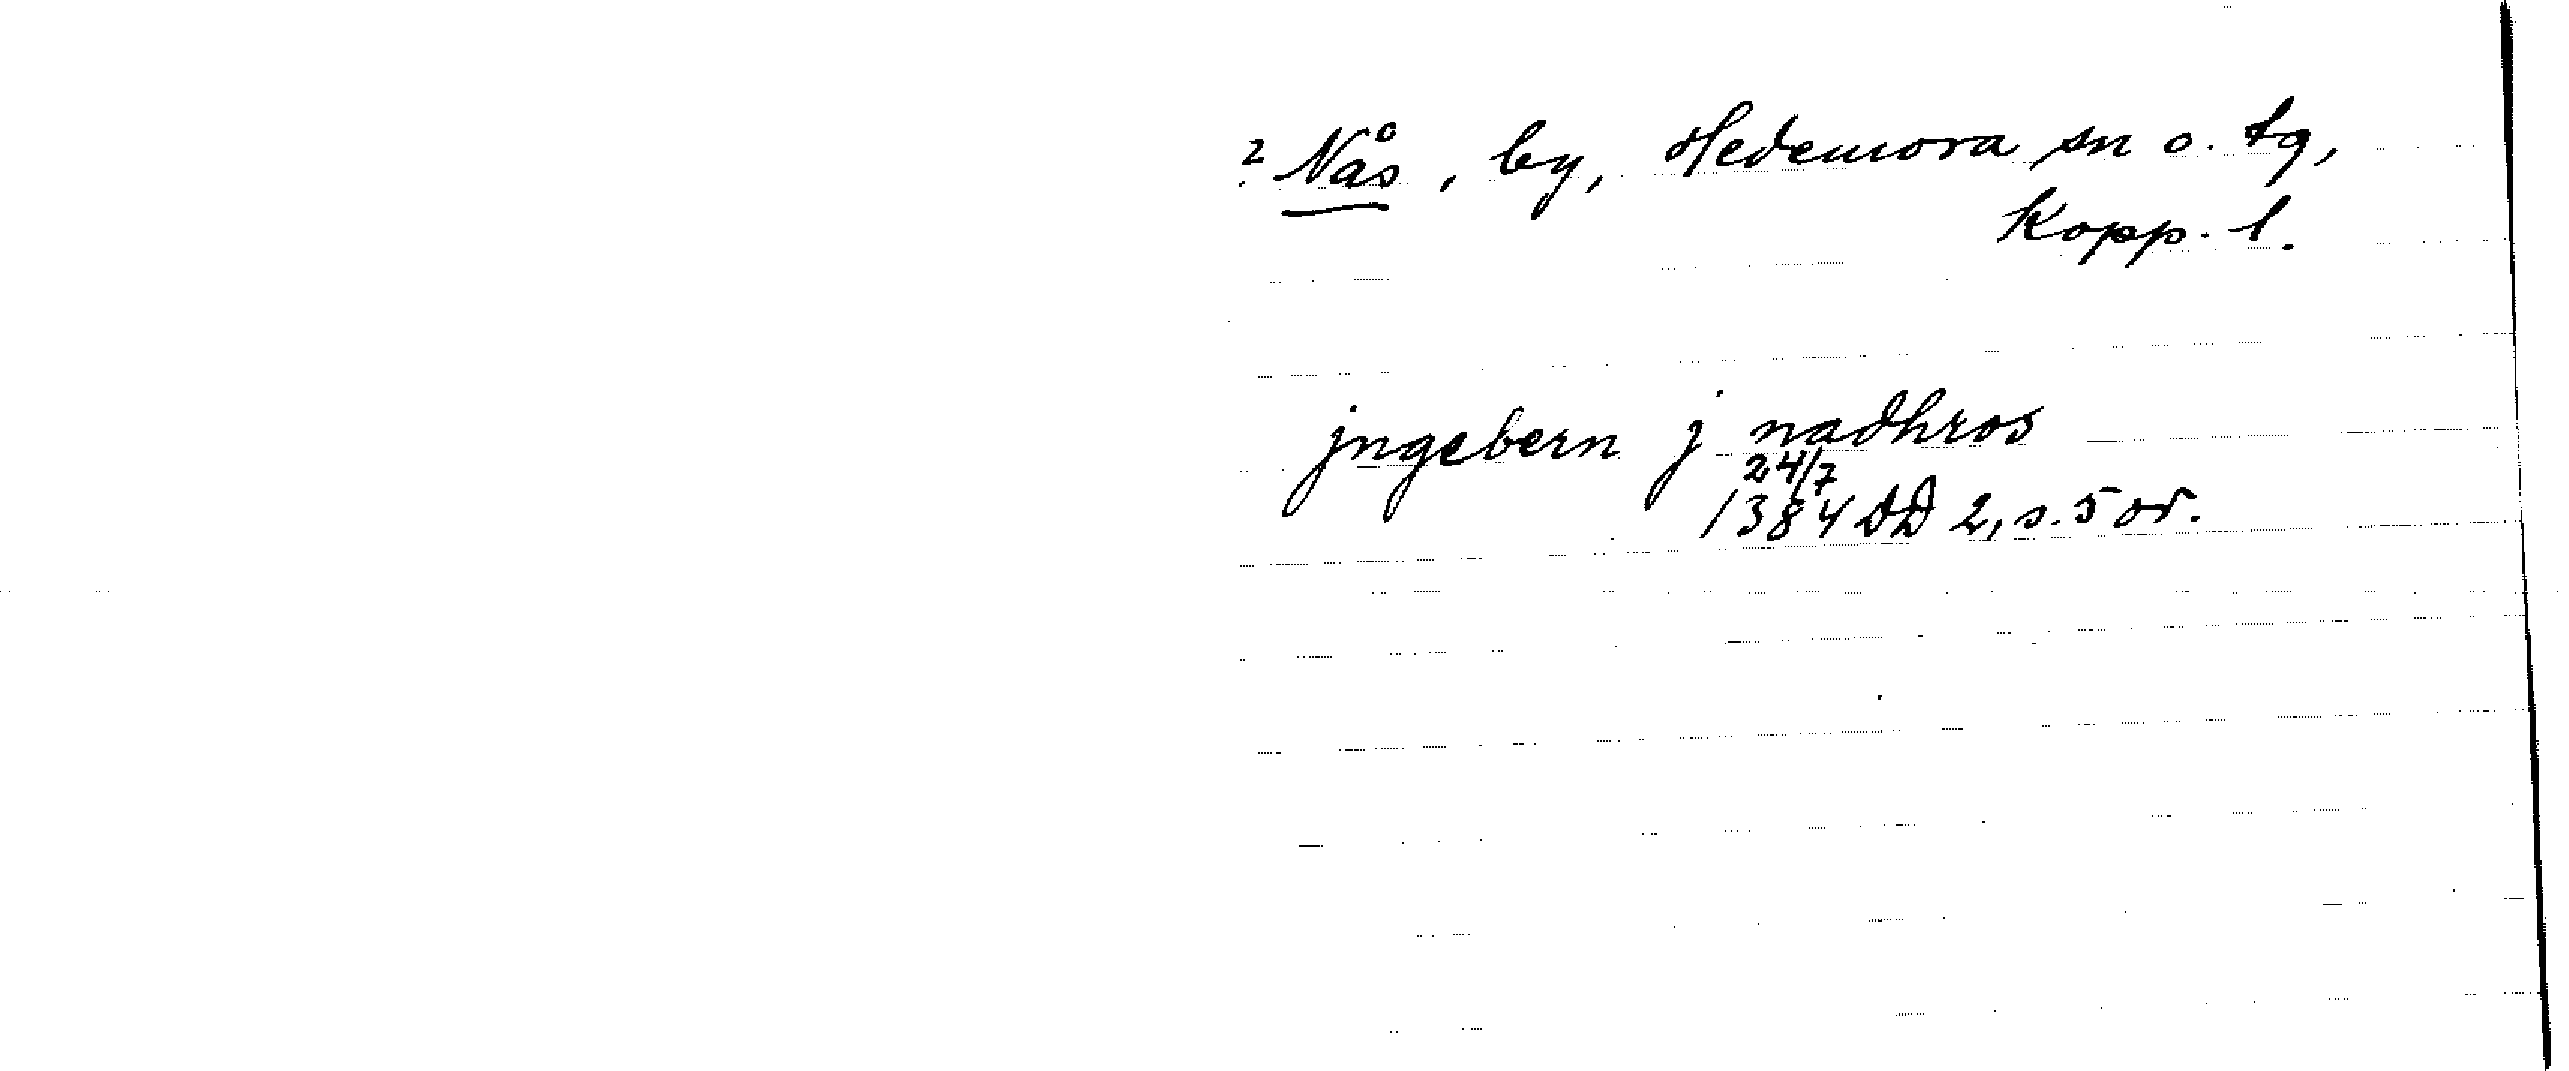 ? Nås, by, Hedemora sn o. tg,
Kopp. l.
jngebern j nadhros
24/7
1384 DD 2, s. 5 or.